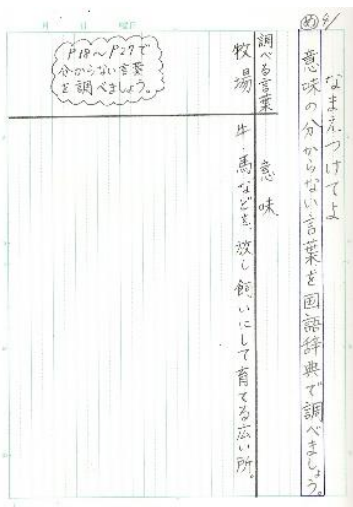 4/
なまえつけてよ
め 意味の分からない言葉を国語辞典で調べましょう。
調べる言葉 意味
牧場 牛・馬などを、放し飼いにして育てる広い所。
P18～P27で
分からない言葉
を調べましょう。
月 日